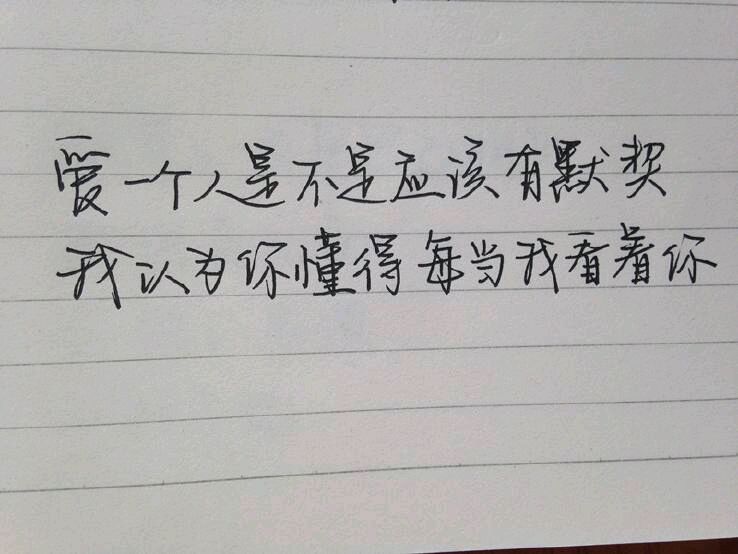 爱一个人是不是应该有默契
我以为你懂得每当我看着你